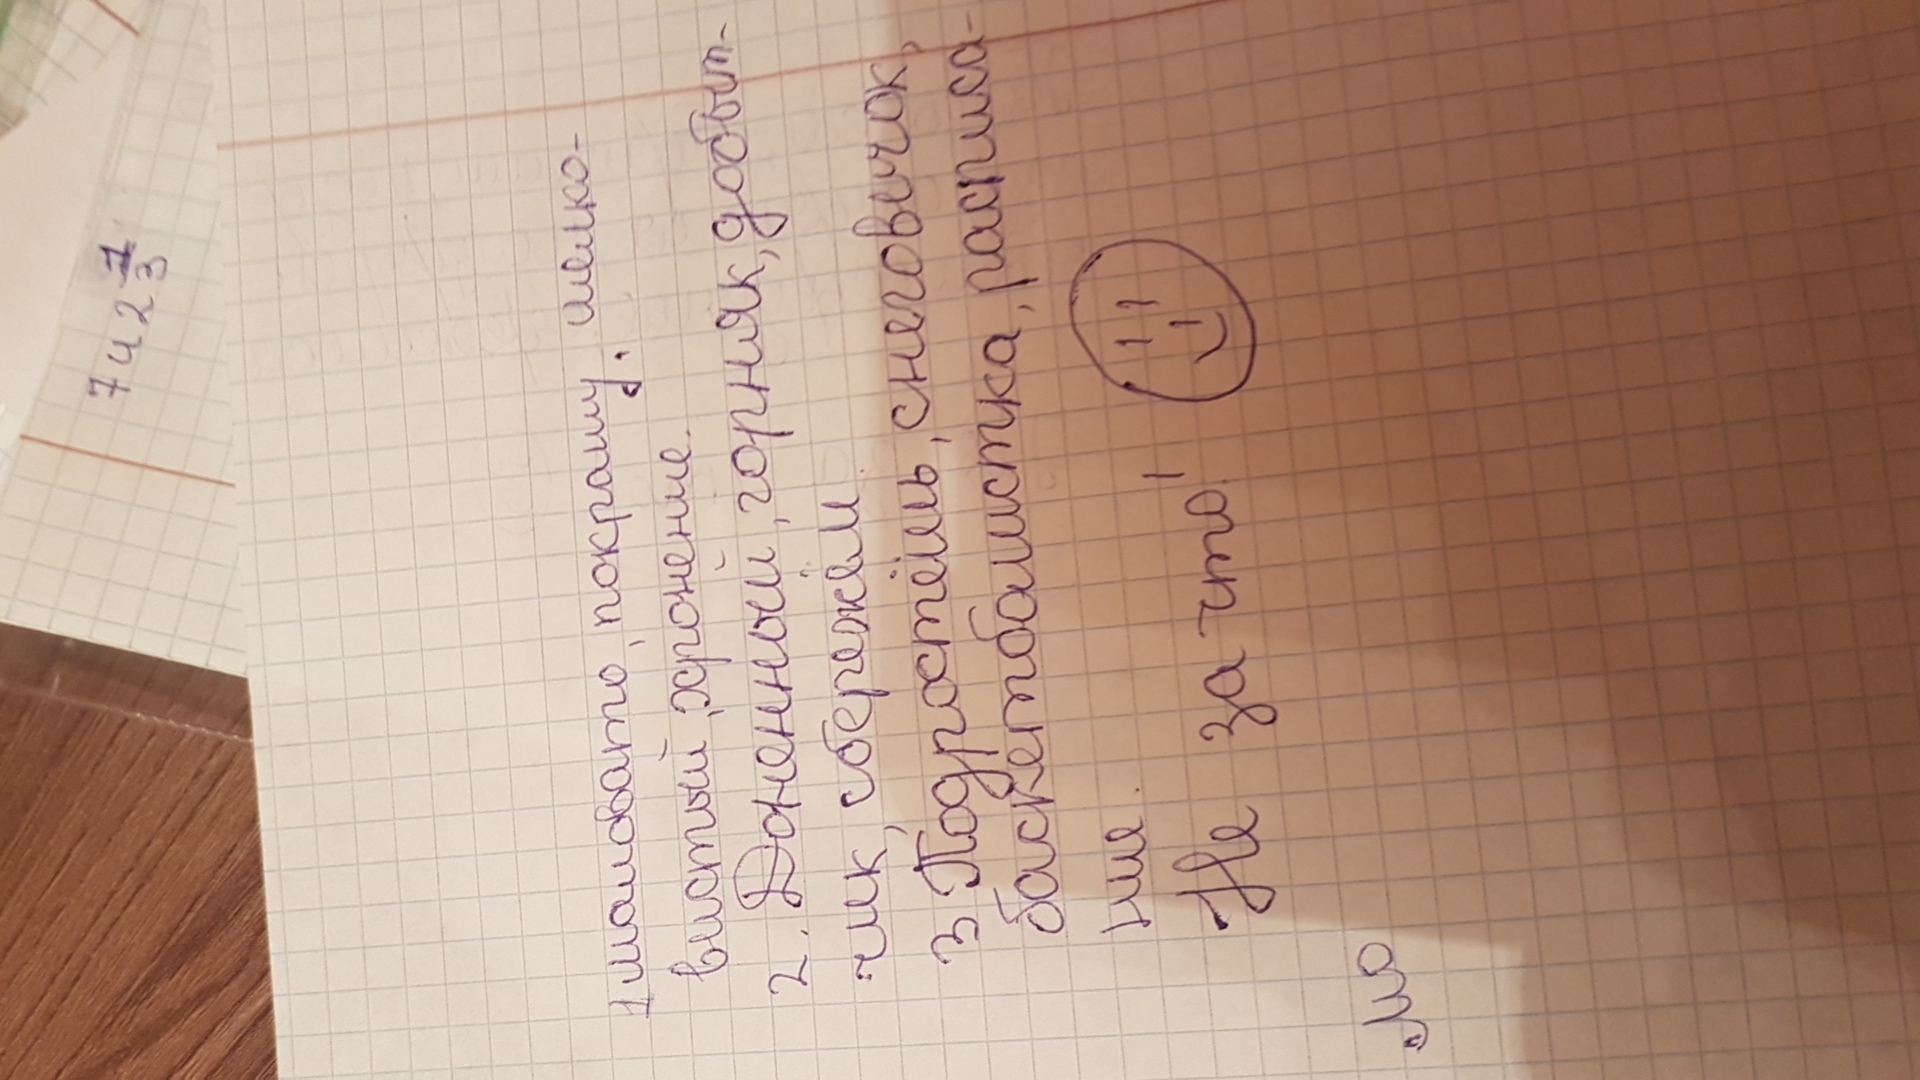 7 4 2 1
3
1 маловато, покрашу. мелко-
вистый,
2. Доненный, горняк, добыт-
чик, сбережём
3 Подростель, снеговичок,
баскетболистка, расписа-
ние.
Не за что!